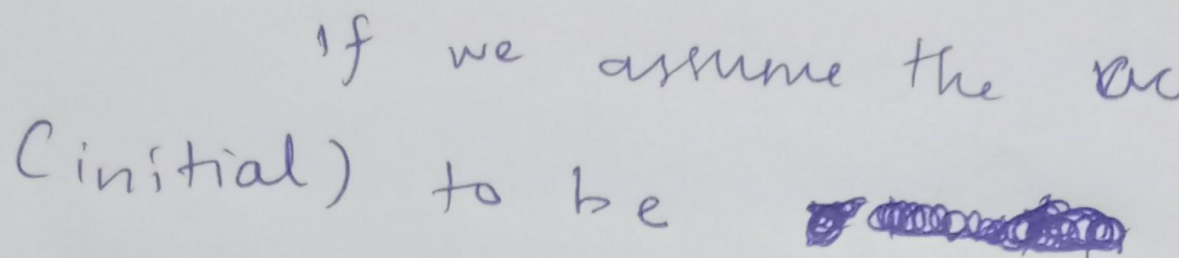 If we assume the
(initial) to be